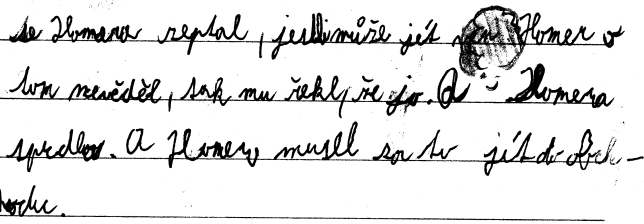 se Homera zeptal, jestli může jét ven Homer o
tom nevěděl, tak mu řekl, že jo. A Homera
sprdla. A Homer musel za to jét do obch-
hodu.